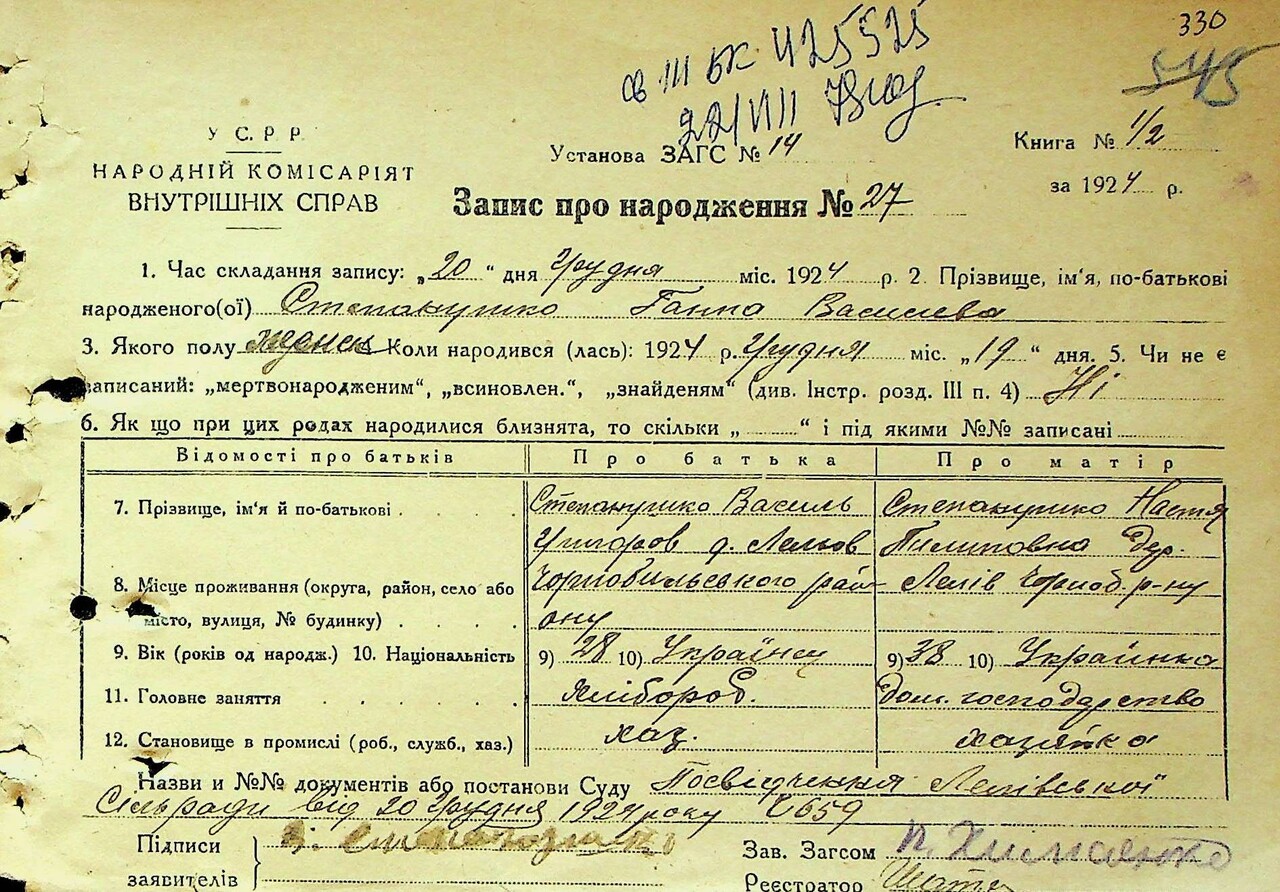 330
св III БК 425525
545
22/VII
У С. Р Р.
НАРОДНІЙ КОМІСАРІЯТ
ВНУТРІШНІХ СПРАВ
Установа ЗАГС № 14
Книга № 1/2
за 1924 р.
Запис про народження № 27
1. Час складання запису: „20“ дня Грудня міс. 1924 р. 2. Прізвище, ім'я, по-батькові
народженого(ої) Степанушко Ганна Василева
3. Якого полу Коли народився (лась): 1924 р. Грудня міс. „19“ дня. 5. Чи не є
записаний: „мертвонародженим“, „всиновлен.“, „знайденям“ (див. Інстр. розд. III п. 4) Ні
6. Як що при цих родах народилися близнята, то скільки „ “ і під якими №№ записані
Відомості про батьків Про батька Про матір
7. Прізвище, ім'я й по-батькові Степанушко Василь Степанушко Настя
Григоров д. Лельов Пилиповна дер.
8. Місце проживання (округа, район, село або Чорнобильського рай- Лелів Чорноб. р-ну
місто, вулиця, № будинку) ону
9. Вік (років од народж.) 10. Національність 9) 28 10) Українец 9) 38 10) Українка
11. Головне заняття хлібороб. Дом. господарство
12. Становище в промислі (роб., служб., хаз.) хаз. хазяйка
Назви и №№ документів або постанови Суду Посвідчення Лелівської
Сільради від 20 Грудня 1924 року №659
Підписи
заявителів
Зав. Загсом
Реєстратор